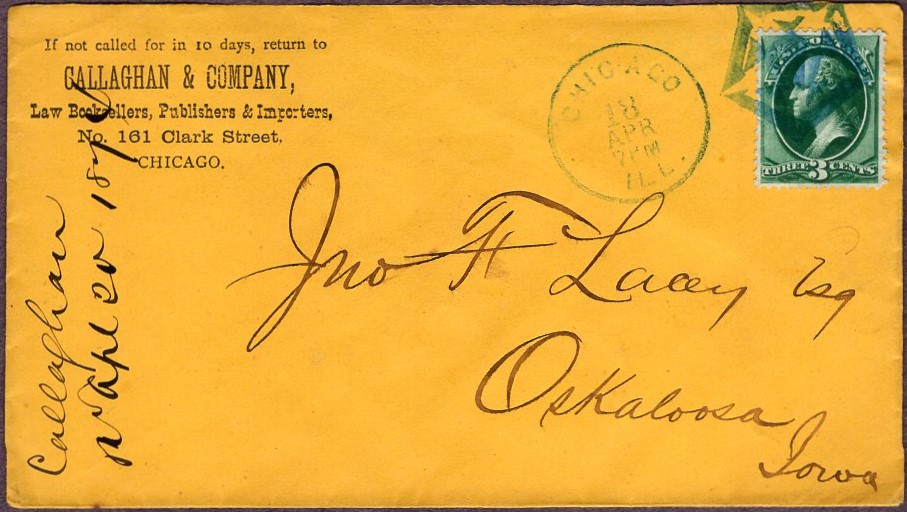 If not called for in 10 days, return to
CALLAGHAN & COMPANY,
Law Booksellers, Publishers & Importers,
No. 161 Clark Street,
CHICAGO.
CHICAGO
18
APR
7 PM
ILL.
THREE 3 CENTS
Jno F Lacey Esq
Oskaloosa
Iowa
Callaghan
Apl 20 187